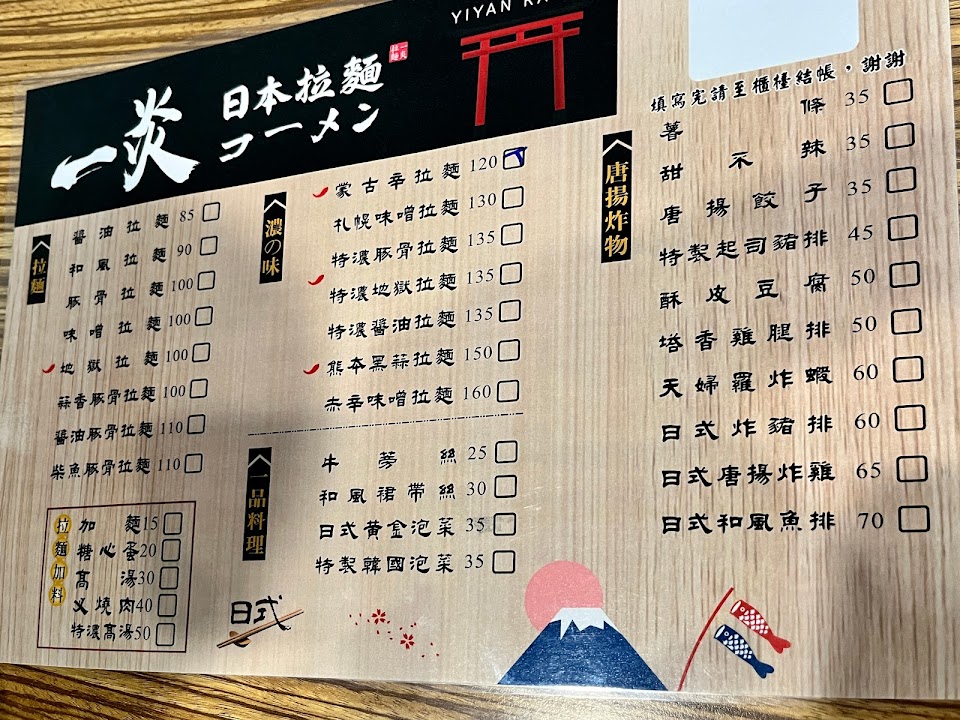 YIYAN RA
一炎
日本拉麵
コーメン
一炎拉麵
填寫完請至櫃檯結帳，謝謝
拉麵
醬油拉麵 85
和風拉麵 90
豚骨拉麵 100
味噌拉麵 100
地獄拉麵 100
蒜香豚骨拉麵 100
醬油豚骨拉麵 110
柴魚豚骨拉麵 110
拉麵加料
加麵 15
糖心蛋 20
高湯 30
叉燒肉 40
特濃高湯 50
濃の味
蒙古辛拉麵 120
札幌味噌拉麵 130
特濃豚骨拉麵 135
特濃地獄拉麵 135
特濃醬油拉麵 135
熊本黑蒜拉麵 150
赤辛味噌拉麵 160
一品料理
牛蒡絲 25
和風裙帶絲 30
日式黃金泡菜 35
特製韓國泡菜 35
日式
唐揚炸物
薯條 35
甜不辣 35
唐揚餃子 35
特製起司豬排 45
酥皮豆腐 50
塔香雞腿排 50
天婦羅炸蝦 60
日式炸豬排 60
日式唐揚炸雞 65
日式和風魚排 70